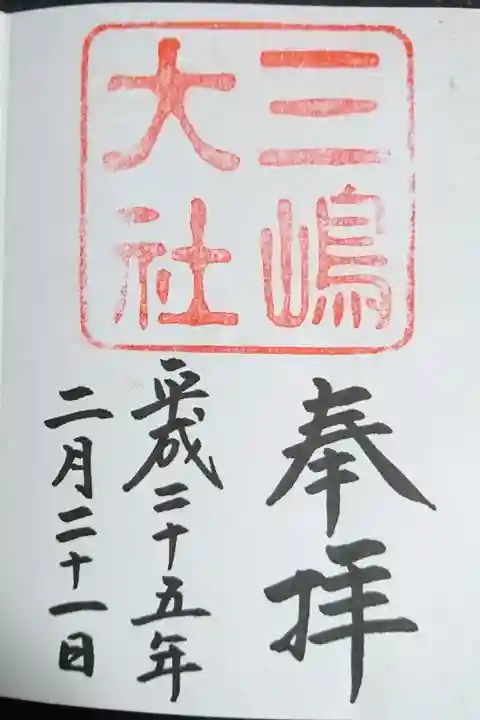 三嶋
大社
奉拝
平成二十五年
二月二十一日